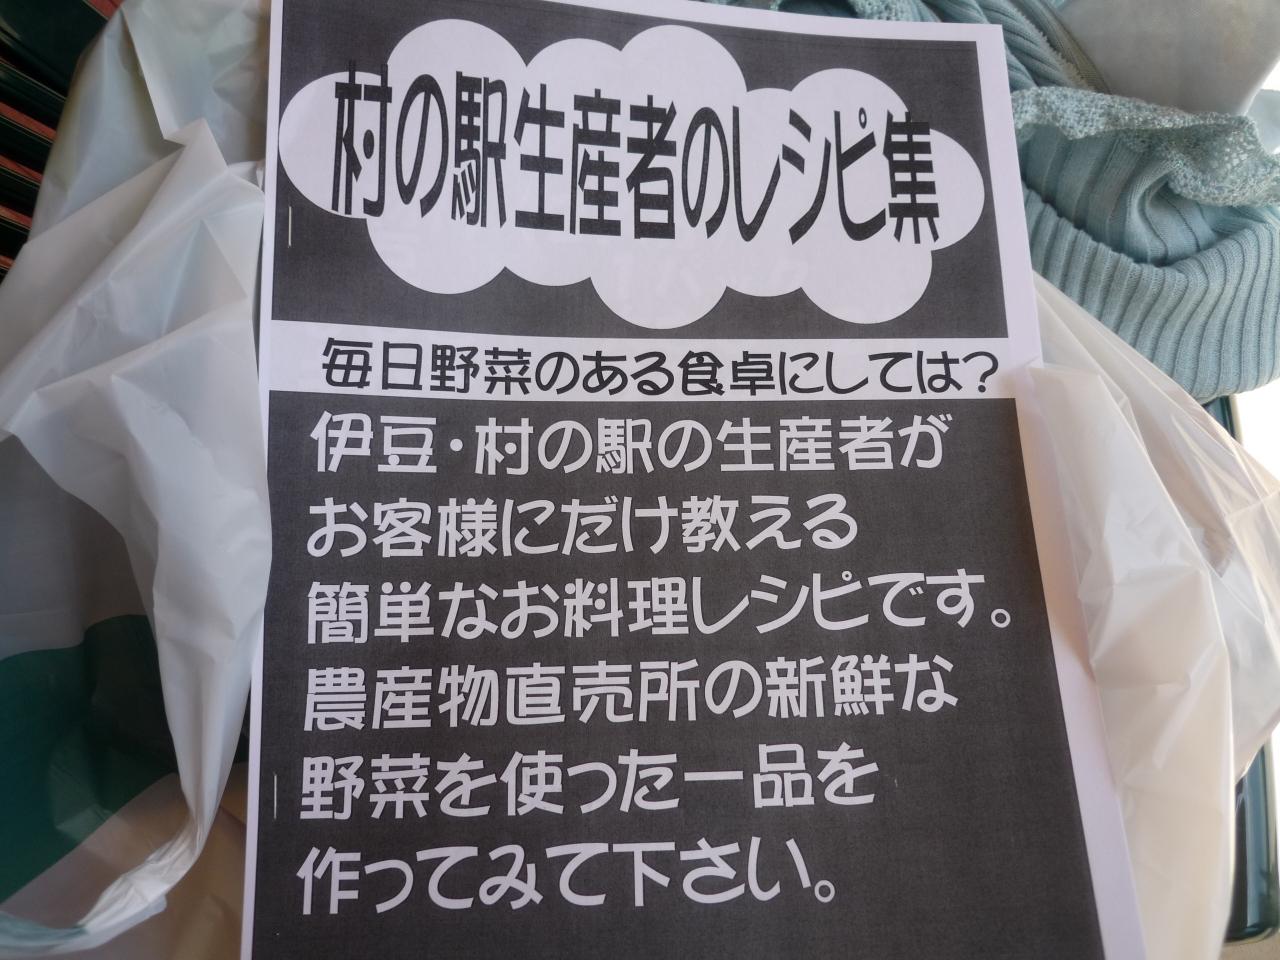 村の駅生産者のレシピ集
毎日野菜のある食卓にしては?
伊豆・村の駅の生産者が
お客様にだけ教える
簡単なお料理レシピです。
農産物直売所の新鮮な
野菜を使った一品を
作ってみて下さい。